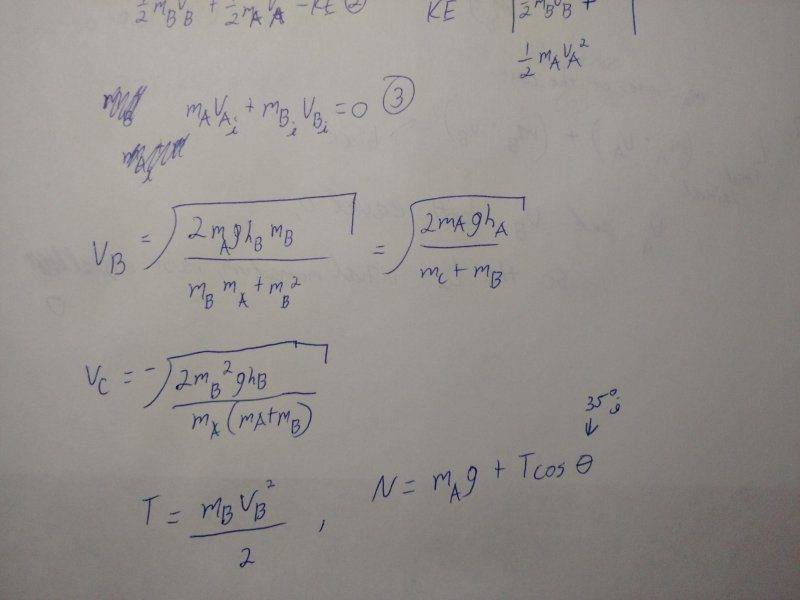 ½ m_B v_B + ½ m_A v_A - KE ② KE ½ m_B v_B +
½ m_A v_A²
m_A v_{A_i} + m_{B_i} v_{B_i} = 0 ③
V_B = √(2 m_A g h_B m_B / (m_B m_A + m_B²)) = √(2 m_A g h_A / (m_C + m_B))
V_C = -√(2 m_B² g h_B / (m_A (m_A + m_B)))
35° ;
↓
T = m_B V_B² / 2 , N = m_A g + T cos θ